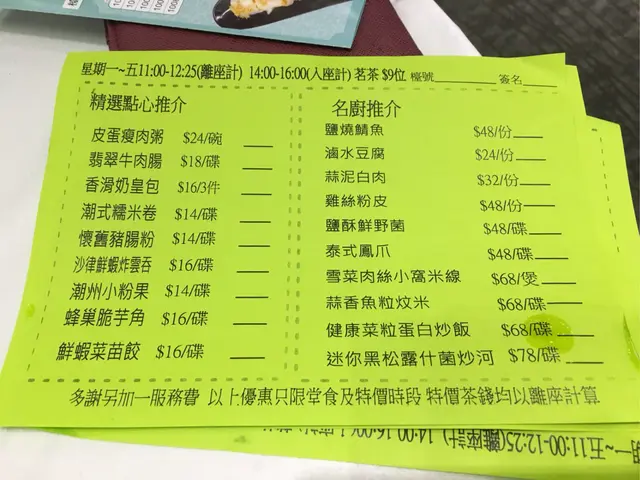 星期一~五11:00-12:25(離座計) 14:00-16:00(入座計) 茗茶 $9位 檯號 簽名
精選點心推介
皮蛋瘦肉粥 $24/碗
翡翠牛肉腸 $18/碟
香滑奶皇包 $16/3件
潮式糯米卷 $14/碟
懷舊豬腸粉 $14/碟
沙律鮮蝦炸雲吞 $16/碟
潮州小粉果 $14/碟
蜂巢脆芋角 $16/碟
鮮蝦菜苗餃 $16/碟
名廚推介
鹽燒鯖魚 $48/份
滷水豆腐 $24/份
蒜泥白肉 $32/份
雞絲粉皮 $48/份
鹽酥鮮野菌 $48/碟
泰式鳳爪 $48/碟
雪菜肉絲小窩米線 $68/煲
蒜香魚粒炆米 $68/碟
健康菜粒蛋白炒飯 $68/碟
迷你黑松露什菌炒河 $78/碟
多謝另加一服務費 以上優惠只限堂食及特價時段 特價茶錢均以離座結算
期一~五11:00-12:25(離座計) 14:00-16:00(